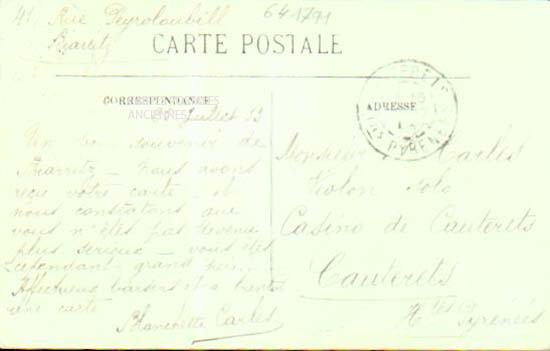 41 Rue Peyroloubilh
Biarritz
641791
CARTE POSTALE
CORRESPONDANCE
ANCIENNES
ADRESSE
PYRENEES
Juillet 23
Un bon souvenir de
Biarritz – nous avons
reçu votre carte – et
nous constatons que
vous n'êtes pas devenu
plus sérieux – vous êtes
cependant grand
Affectueux baisers et a bientôt
une carte
Blanchette Carles
Monsieur Carles
Violon solo
Casino de Cauterets
Cauterets
Htes Pyrénées